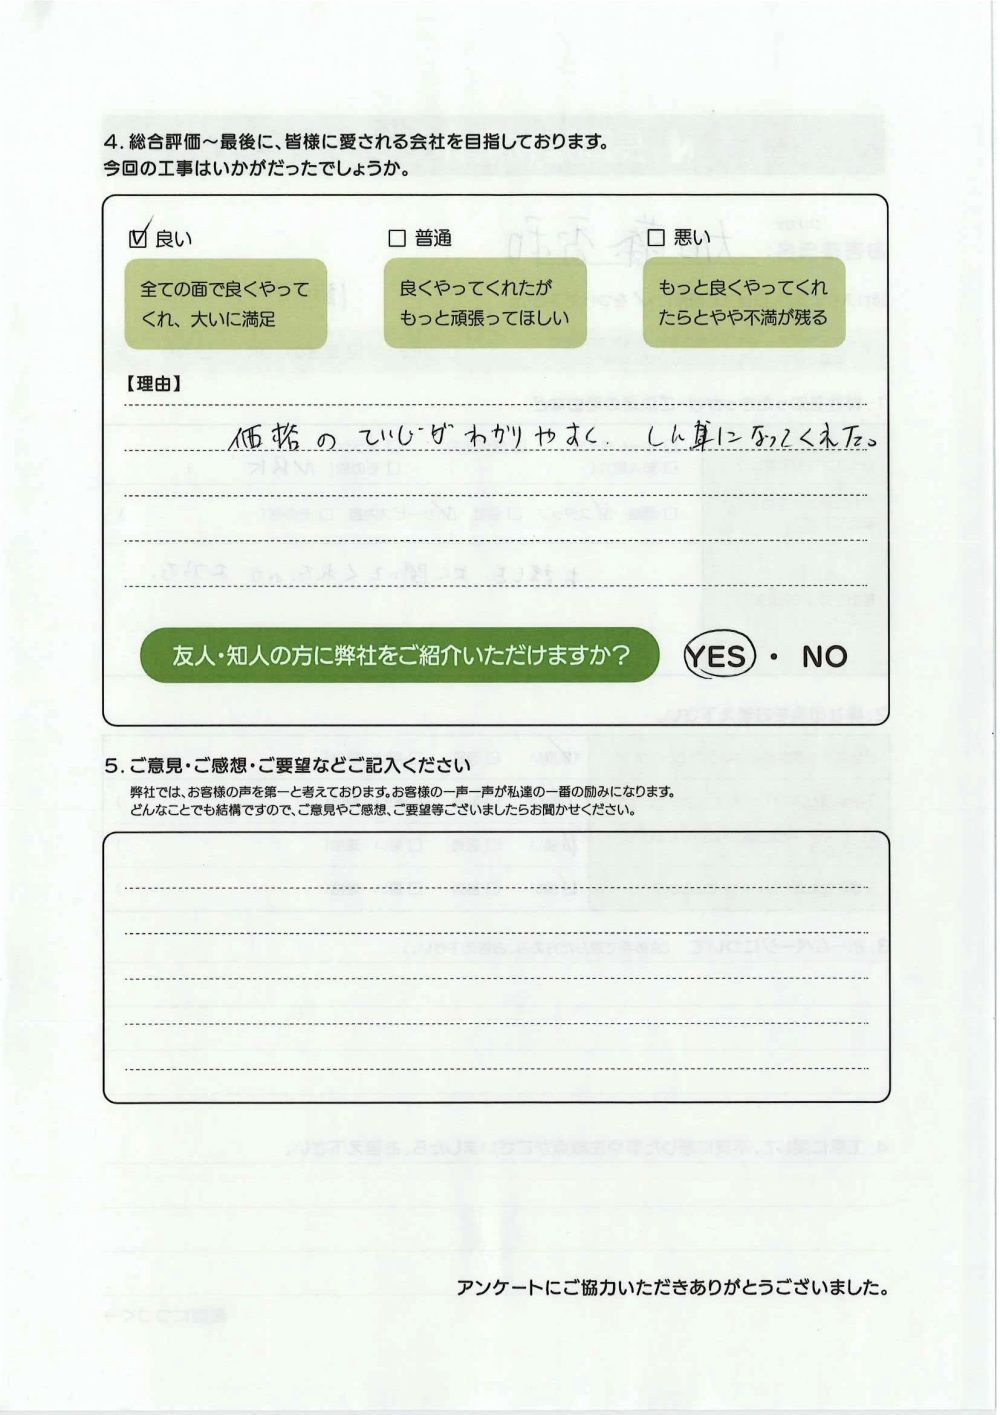 4. 総合評価～最後に、皆様に愛される会社を目指しております。
今回の工事はいかがだったでしょうか。
☑ 良い
□ 普通
□ 悪い
全ての面で良くやって
くれ、大いに満足
良くやってくれたが
もっと頑張ってほしい
もっと良くやってくれ
たらとやや不満が残る
【理由】
価格の ていじがわかりやすく. しん身になってくれた。
友人・知人の方に弊社をご紹介いただけますか？ YES ・ NO
5. ご意見・ご感想・ご要望などご記入ください
弊社では、お客様の声を第一と考えております。お客様の一声一声が私達の一番の励みになります。
どんなことでも結構ですので、ご意見やご感想、ご要望等ございましたらお聞かせください。
アンケートにご協力いただきありがとうございました。